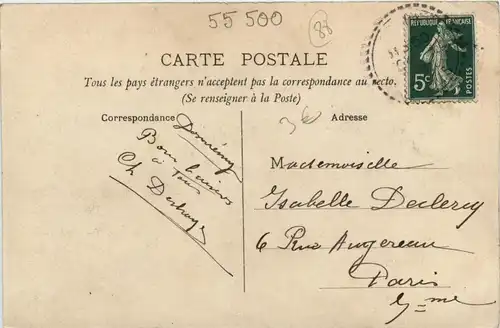 55 500
88
RÉPUBLIQUE FRANÇAISE
5c
POSTES
CARTE POSTALE
Tous les pays étrangers n'acceptent pas la correspondance au recto.
(Se renseigner à la Poste)
Correspondance
Bons baisers
à tous
Ch
3€
Adresse
Mademoiselle
Isabelle Declercq
6 Rue Augereau
Paris
7me